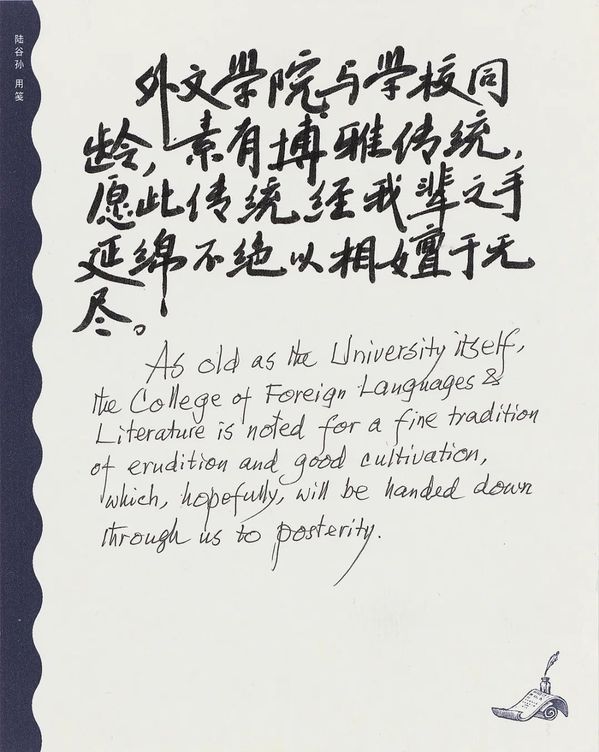 陆谷孙 用笺
外文学院与学校同
龄,素有博雅传统,
愿此传统经我辈之手
延绵不绝以相嬗于无
尽。
As old as the University itself,
the College of Foreign Languages &
Literature is noted for a fine tradition
of erudition and good cultivation,
which, hopefully, will be handed down
through us to posterity.